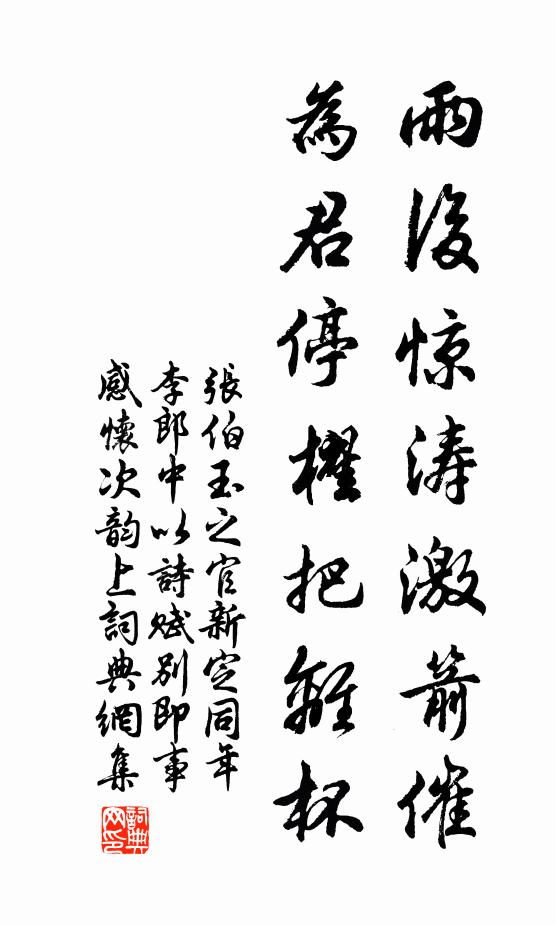 雨後惊涛激箭催
為君停櫂把離杯
張伯玉之官新定同年
李郎中以詩賦別即事
感懷次韵上詞典網集
詞典
网印